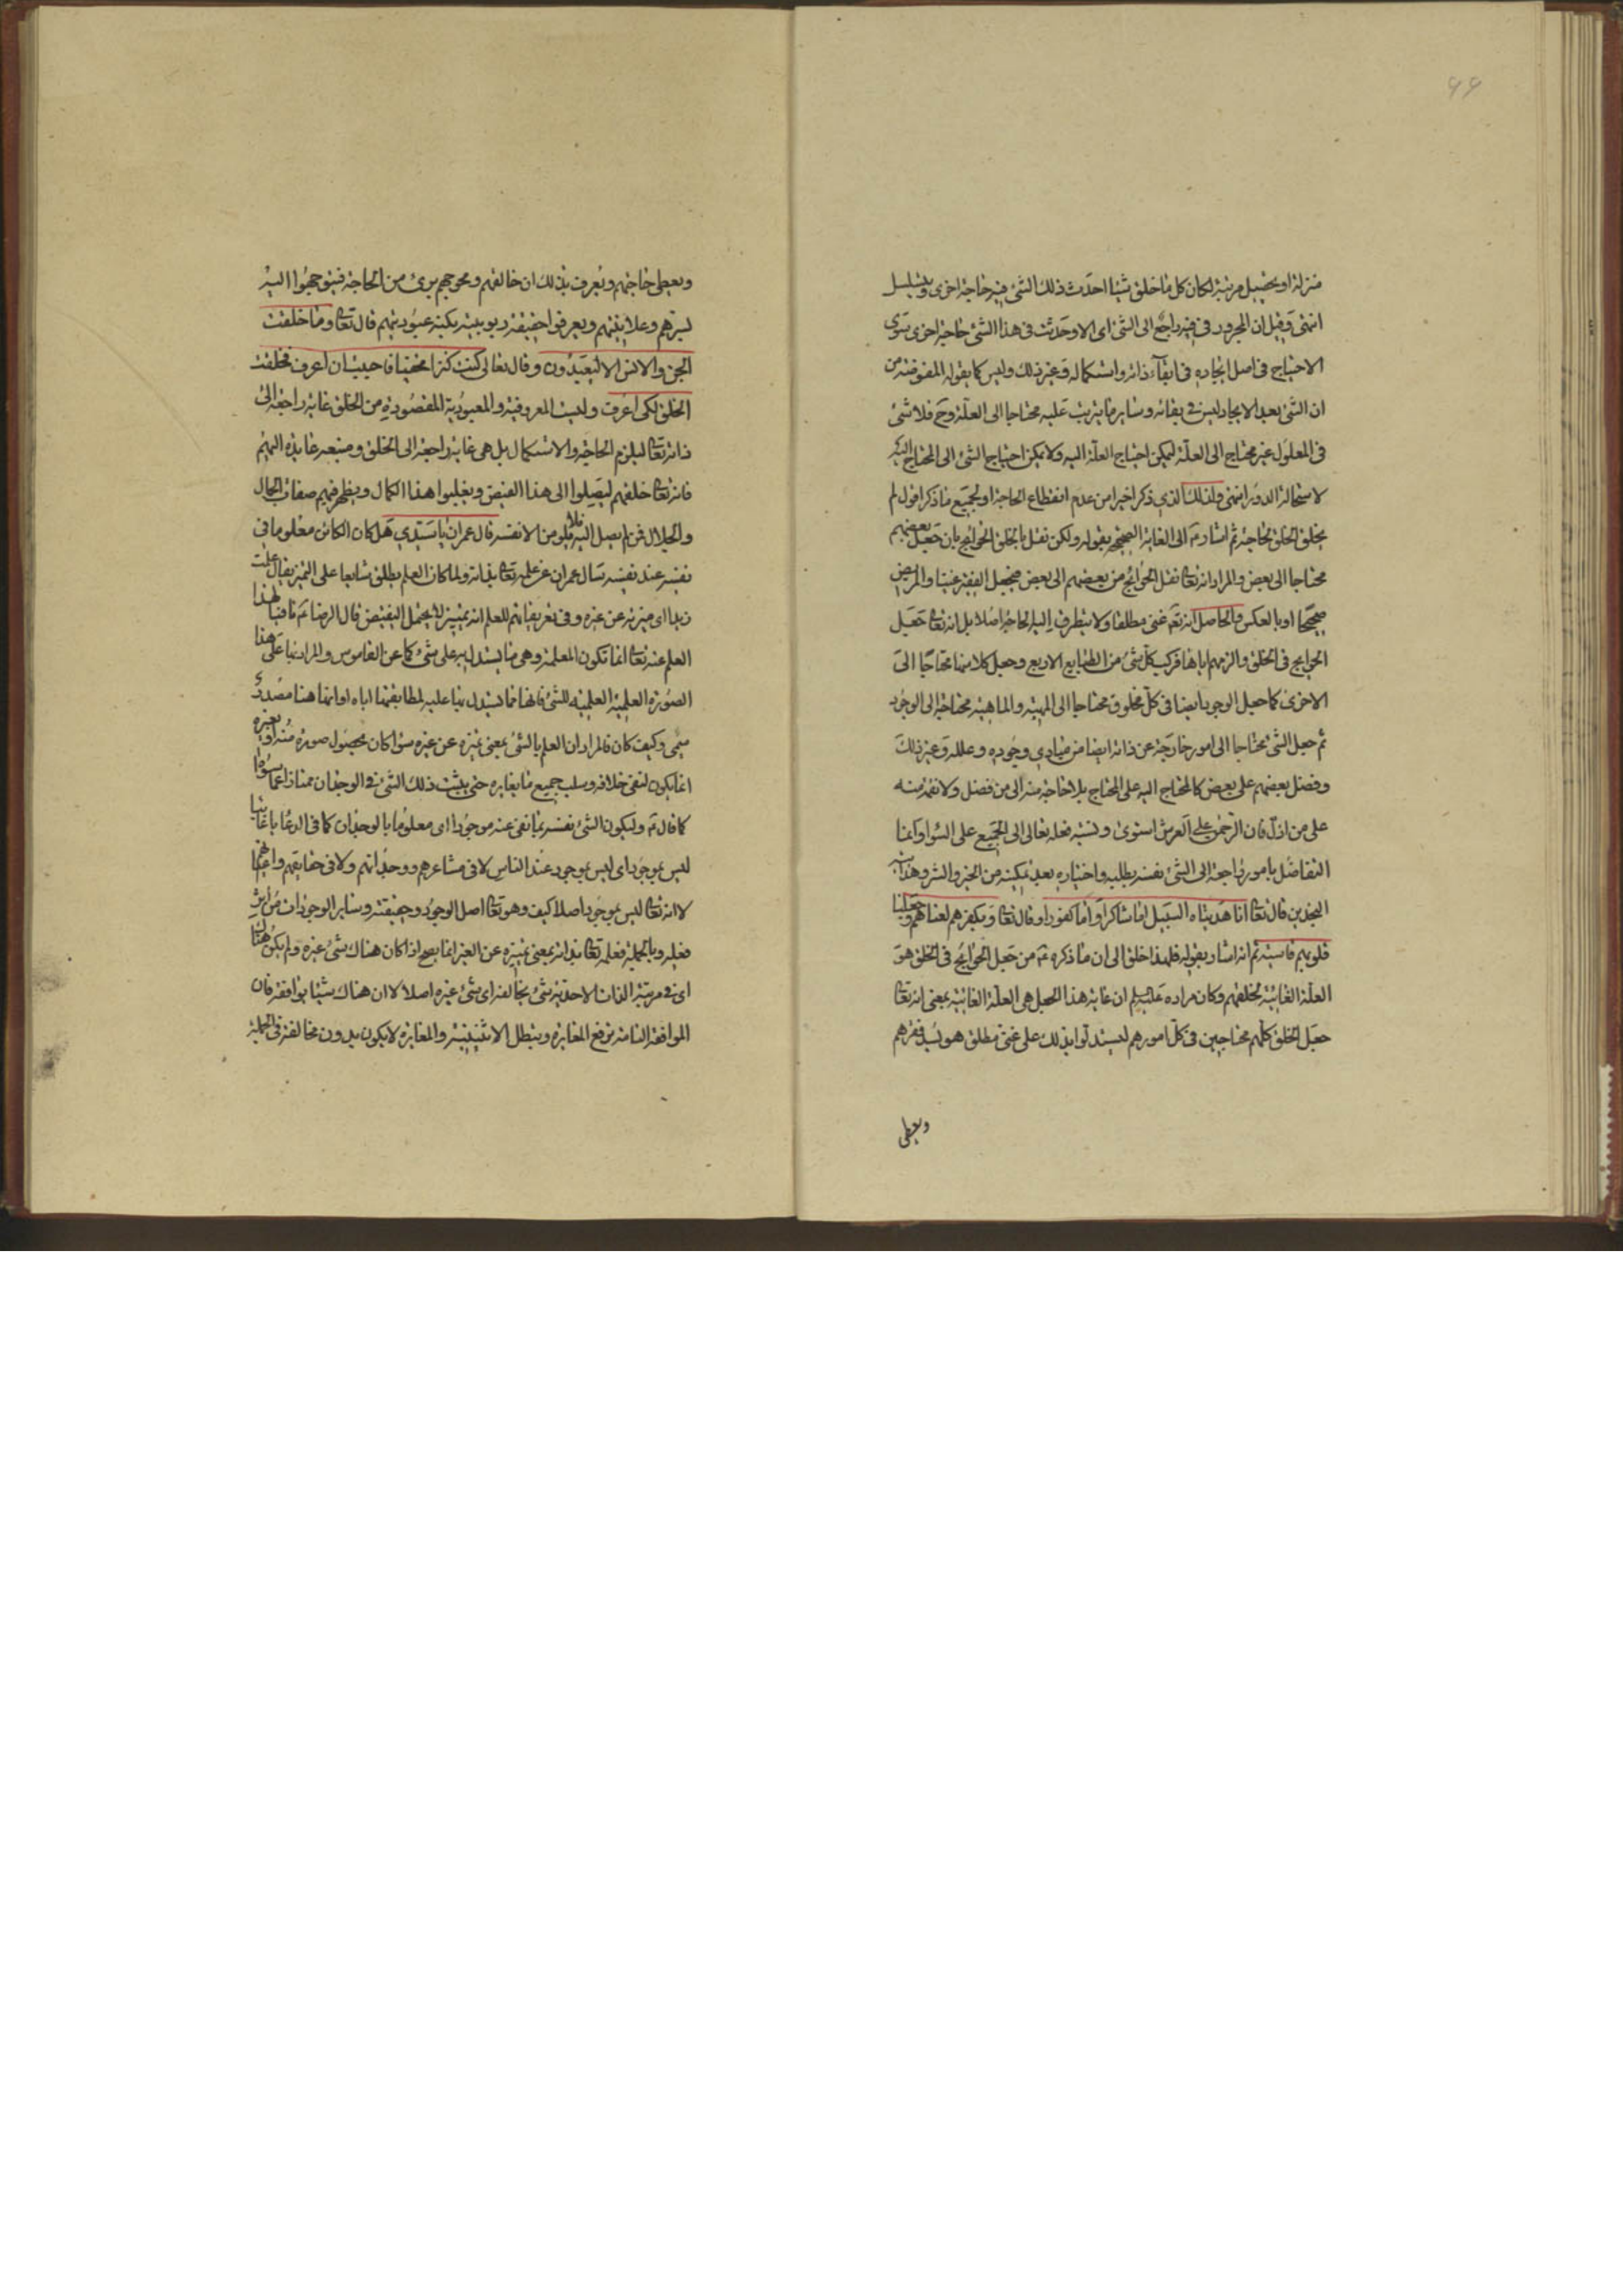 ٤٩
منزلة او تحصيل مرتبة لكان كل ما خلق شيئا احدث ذلك الشئ فيه حاجة اخرى ويتسلسل
انتهى وقيل ان المجرور في فيه راجع الى الشئ اى الا وحدثت في هذا الشئ حاجة اخرى سوى
الاحتياج في اصل ايجاده في ابقاء ذاته واستكماله وغير ذلك وليس كما يقوله المفوضة من
ان الشئ بعد الايجاد ليس في بقائه وساير ما يترتب عليه محتاجا الى العلة وح فلا شئ
في المعلول غير محتاج الى العلة ليمكن احتياج العلة اليه ولا يمكن احتياج الشئ الى المحتاج اليه
لاستحالة الدور انتهى ولذلك الذي ذكر اخيرا من عدم انقطاع الحاجة او لجميع ما ذكر اقول لم
يخلق الخلق لحاجة ثم اشار ع الى الغاية الصحيحة بقوله ولكن نقل بالخلق الحوائج بان جعل بعضهم
محتاجا الى بعض والمراد انه تعالى نقل الحوائج من بعضهم الى بعض فيجعل الفقير غنيا والمريض
صحيحا او بالعكس والحاصل انه تعالى غنى مطلقا ولا يتطرف اليه الحاجة اصلا بل انه تعالى جعل
الحوايج في الخلق والزمهم اياها فركب كل شئ من الطبايع الاربع وجعل كلا منها محتاجا الى
الاخرى كما جعل الوجود ايضا في كل مخلوق محتاجا الى المهية والماهية محتاجة الى الوجود
ثم جعل الشئ محتاجا الى امور خارجة عن ذاته ايضا من مبادي وجوده وعلله وغير ذلك
وفضل بعضهم على بعض كالمحتاج اليه على المحتاج بلا حاجة منه الى من فضل ولا نقمة منه
على من اذل فان الرحمن على العرش استوى ونسبة فعله تعالى الى الجميع على السواء وانما
التفاضل بامور راجعة الى الشئ نفسه بطلبه واختياره بعد تمكينه من الخير والشر وهدايته
النجدين قال تعالى انا هديناه السبيل اما شاكرا واما كفورا وقال تعالى وبكفرهم لعناهم وجعلنا
قلوبهم قاسية ثم انه اشار بقوله فلهذا خلق الى ان ما ذكره ع من جعل الحوائج في الخلق هو
العلة الغائية لخلقهم وكان مراده عليه السلم ان غاية هذا الجعل هى العلة الغائية بمعنى انه تعالى
جعل الخلق كلهم محتاجين في كل امورهم ليستدلوا بذلك على غنى مطلق هو يسد فقرهم
ويعطى
ويعطى حاجتهم ويعرف بذلك ان خالقهم ومحوجهم برئ من الحاجة فيتوجهوا اليه
بسرهم وعلانيتهم ويعرفوا حقيقة ربوبيته بكنه عبوديتهم قال تعالى وما خلقت
الجن والانس الا ليعبدون وقال تعالى كنت كنزا مخفيا فاحببت ان اعرف فخلقت
الخلق لكى اعرف وليست المعروفية والمعبودية المقصودة من الخلق غاية راجعة الى
ذاته تعالى ليلزم الحاجة والاستكمال بل هى غاية راجعة الى الخلق ومنفعة عايدة اليهم
فانه تعالى خلقهم ليصلوا الى هذا الفيض ويقبلوا هذا الكمال ويظهر فيهم صفات الجمال
والجلال فمن لم يصل اليه فلا يلومن الا نفسه قال عمران يا سيدي هل كان الكائن معلوما في
نفسه عند نفسه سأل عمران عن علمه تعالى بذاته ولما كان العلم يطلق شايعا على التميز يقال علمت
زيدا اى ميزته عن غيره وفي تعريفاتهم للعلم انه تمييز لا يحتمل النقيض قال الرضا ع نافيا لهذا
العلم عنه تعالى انما تكون المعلمة وهى ما يستدل به على شئ كما عن القاموس والمراد بها على هذا
الصورة العلمية العلمية للشئ فانها مما يستدل بها عليه لمطابقتها اياه او انها هنا مصدر
ميمى وكيف كان فالمراد ان العلم بالشئ بمعنى تميزه عن غيره سواء كان بحصول صورة منه او بغيره
انما يكون لنفى خلافه وسلب جميع ما يغايره حتى يثبت ذلك الشئ في الوجدان ممتازا عما سواه
كما قال ع وليكون الشئ نفسه بما نفى عنه موجودا اى معلوما بالوجدان كما في الدعا يا غائبا
ليس بموجود اى ليس بموجود عند الناس لا في مشاعرهم ووجدانهم ولا في حقايقهم واعيانهم
لا انه تعالى ليس بموجود اصلا كيف وهو تعالى اصل الوجود وحقيقته وساير الوجودات من اثر
فعله وبالجملة فعلمه تعالى بذاته بمعنى تميزه عن الغير انما يصح اذا كان هناك شئ غيره ولم يكن هناك
اى في مرتبة الذات الاحدية شئ يخالفه اى شئ غيره اصلا لا ان هناك شيئا يوافقه فان
الموافقة التامة ترفع المغايرة وتبطل الاثنينية والمغايرة لا يكون بدون مخالفة في الجملة